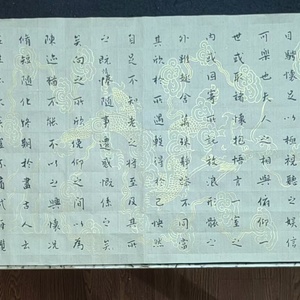 目騁懷足以極視聽之娛信
可樂也夫人之相與俯仰一
世或取諸懷抱悟言一室之
內或因寄所託放浪形骸之
外雖趣舍萬殊靜躁不同當
其欣於所遇暫得於己快然
自足不知老之將至及其所
之既惓隨事遷感慨係之矣
矣向之所欣俛仰之間以為
陳迹猶不能不以之興懷況
脩短隨化終期於盡古人云